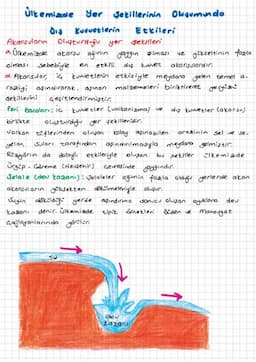 Ülkemizde Yer Şekillerinin Oluşumunda
Dış Kuvvetlerin Etkileri
Akarsuların Oluşturduğu yer şekilleri
Ülkemizde akarsu ağının yaygın olması ve yükseltinin fazla
olması sebebiyle en etkili dış kuvvet akarsulardır.
Akarsular, iç kuvvetlerin etkisiyle meydana gelen temel a-
raziyi aşındırarak, aşınan malzemeleri biriktirerek yeryüzü
şekillerini çeşitlendirmiştir.
Peri bacaları: iç kuvvetler (volkanizma) ve dış kuvvetler (akarsu)
birlikte oluşturduğu yer şekilleridir.
Volkan tüflerinden oluşan kolay aşınabilen arazinin sel ve se-
yelan suları tarafından aşındırılmasıyla meydana gelmiştir.
Rüzgarın da dolaylı etkileriyle oluşan bu şekiller ülkemizde
Ürgüp - Göreme (Nevşehir) çevresinde yaygındır.
Şelale (dev kazanı): Şelaleler eğimin fazla olduğu yerlerde akan
akarsuların yüksekten dökülmeleriyle oluşur.
Suyun döküldüğü yerde aşındırma sonucu oluşan oyuklara dev
kazanı denir. Ülkemizde tipik örnekleri Düden ve Manavgat
Çağlayanlarında görülür.
SU
Dev
kazanı